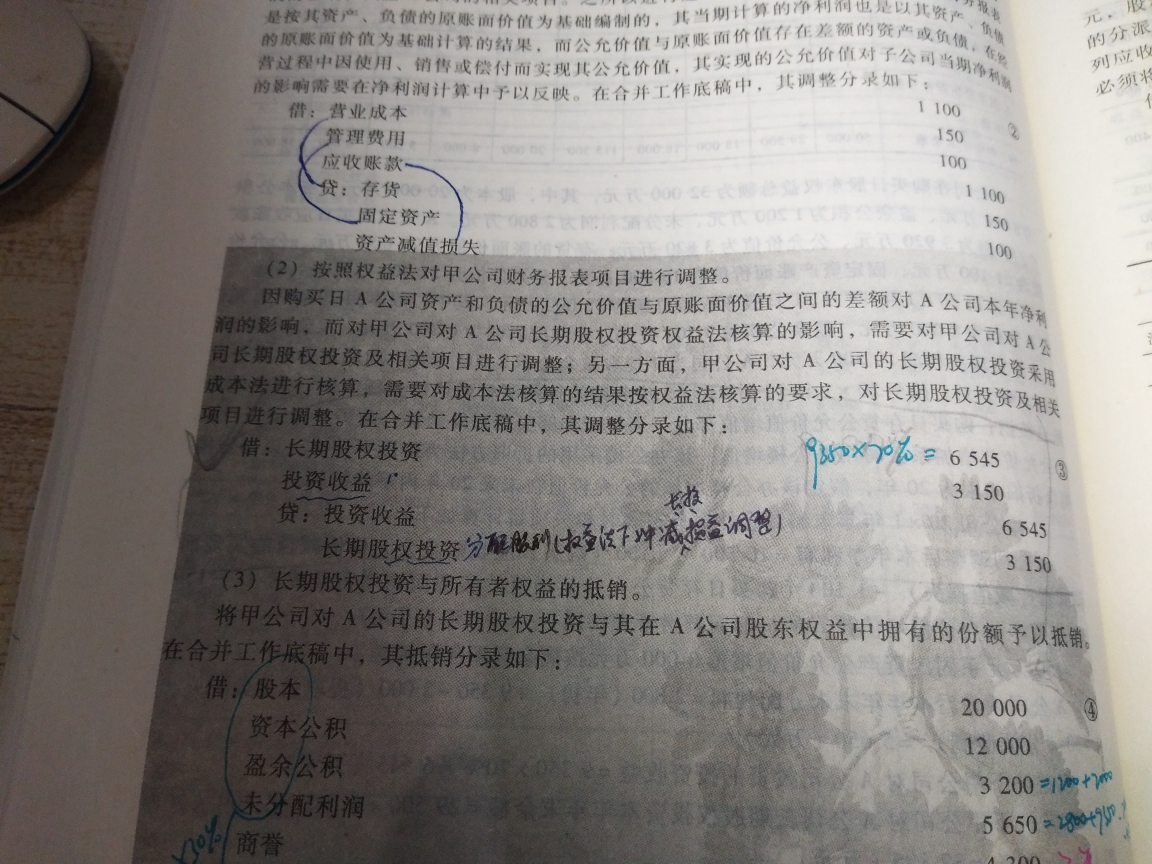 是按其资产、负债的原账面价值为基础编制的，其当期计算的净利润也是以其资产、负债
的原账面价值为基础计算的结果，而公允价值与原账面价值存在差额的资产或负债，在经
营过程中因使用、销售或偿付而实现其公允价值，其实现的公允价值对子公司当期净利润
的影响需要在净利润计算中予以反映。在合并工作底稿中，其调整分录如下：
借：营业成本 1 100 ②
管理费用 150
应收账款 100
贷：存货 1 100
固定资产 150
资产减值损失 100
（2）按照权益法对甲公司财务报表项目进行调整。
因购买日 A 公司资产和负债的公允价值与原账面价值之间的差额对 A 公司本年净利
润的影响，而对甲公司对 A 公司长期股权投资权益法核算的影响，需要对甲公司对 A 公
司长期股权投资及相关项目进行调整；另一方面，甲公司对 A 公司的长期股权投资采用
成本法进行核算，需要对成本法核算的结果按权益法核算的要求，对长期股权投资及相关
项目进行调整。在合并工作底稿中，其调整分录如下：
借：长期股权投资 9350×70%= 6 545 ③
投资收益 3 150
贷：投资收益 6 545
长投
长期股权投资 分配股利（权益法下冲减损益调整） 3 150
（3）长期股权投资与所有者权益的抵销。
将甲公司对 A 公司的长期股权投资与其在 A 公司股东权益中拥有的份额予以抵销。
在合并工作底稿中，其抵销分录如下：
借：股本 20 000 ④
资本公积 12 000
盈余公积 3 200 =1200+2000
未分配利润 5 650 =2800+9350
×30% 商誉 4 300
元，股
的分派
列应收
必须将